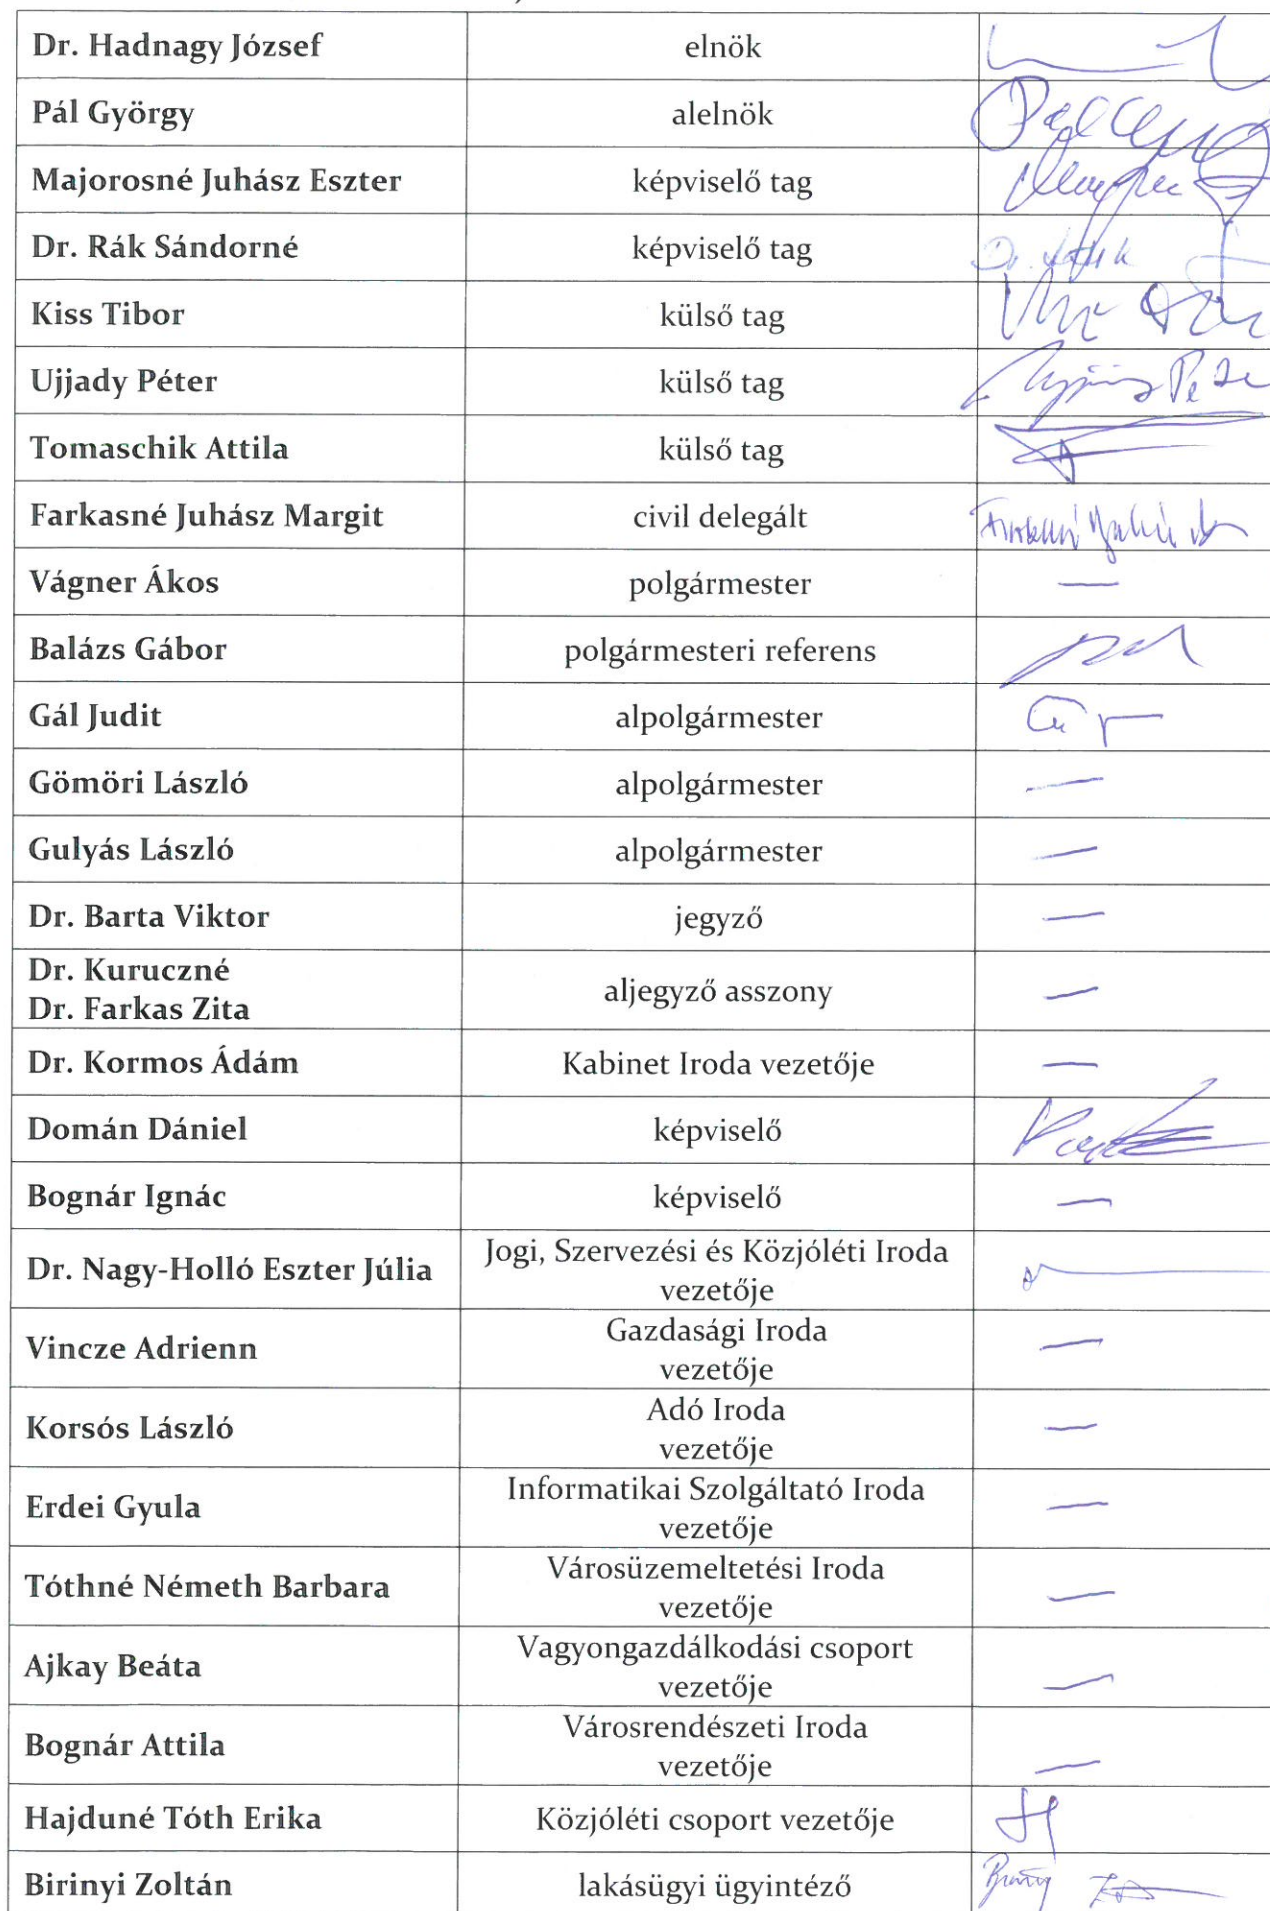 Dr. Hadnagy József elnök
Pál György alelnök
Majorosné Juhász Eszter képviselő tag
Dr. Rák Sándorné képviselő tag
Kiss Tibor külső tag
Ujjady Péter külső tag
Tomaschik Attila külső tag
Farkasné Juhász Margit civil delegált
Vágner Ákos polgármester —
Balázs Gábor polgármesteri referens
Gál Judit alpolgármester
Gömöri László alpolgármester —
Gulyás László alpolgármester —
Dr. Barta Viktor jegyző —
Dr. Kuruczné
Dr. Farkas Zita aljegyző asszony —
Dr. Kormos Ádám Kabinet Iroda vezetője —
Domán Dániel képviselő
Bognár Ignác képviselő —
Dr. Nagy-Holló Eszter Júlia Jogi, Szervezési és Közjóléti Iroda
vezetője
Vincze Adrienn Gazdasági Iroda —
vezetője
Korsós László Adó Iroda —
vezetője
Erdei Gyula Informatikai Szolgáltató Iroda —
vezetője
Tóthné Németh Barbara Városüzemeltetési Iroda —
vezetője
Ajkay Beáta Vagyongazdálkodási csoport —
vezetője
Bognár Attila Városrendészeti Iroda —
vezetője
Hajduné Tóth Erika Közjóléti csoport vezetője
Birinyi Zoltán lakásügyi ügyintéző